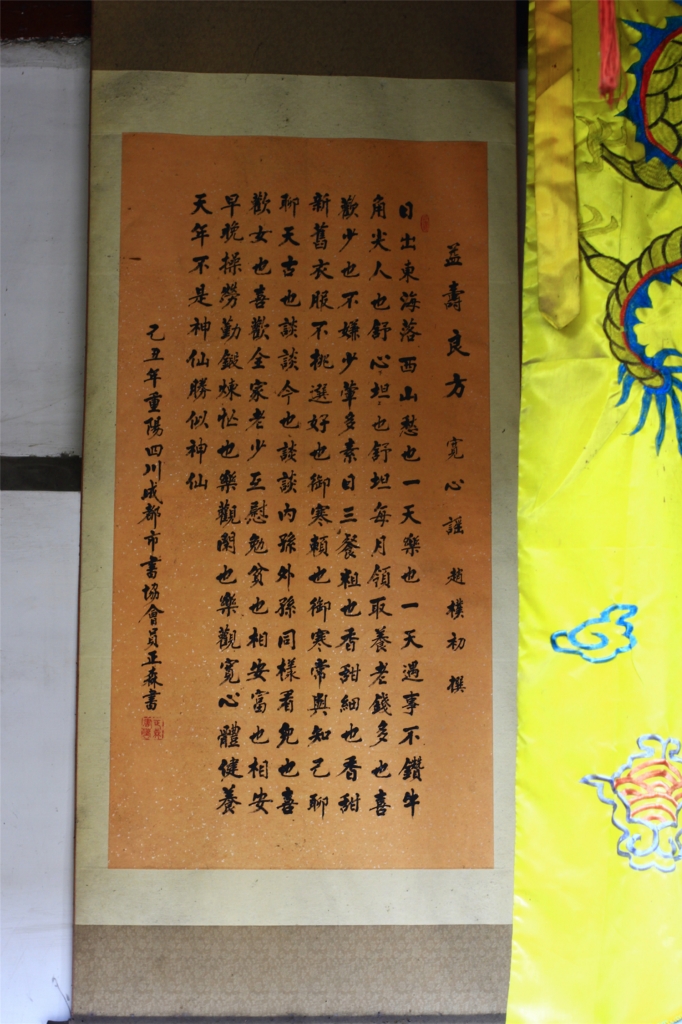 益壽良方 寬心謠 趙樸初撰
日出東海落西山愁也一天樂也一天遇事不鑽牛
角尖人也舒心坦也舒坦每月領取養老錢多也喜
歡少也不嫌少葷多素日三餐粗也香甜細也香甜
新舊衣服不挑選好也御寒賴也御寒常與知己聊
聊天古也談談今也談談內孫外孫同樣看兒也喜
歡女也喜歡全家老少互慰勉貧也相安富也相安
早晚操勞勤鍛煉忙也樂觀閑也樂觀寬心體健養
天年不是神仙勝似神仙
己丑年重陽四川成都市書協會員正森書